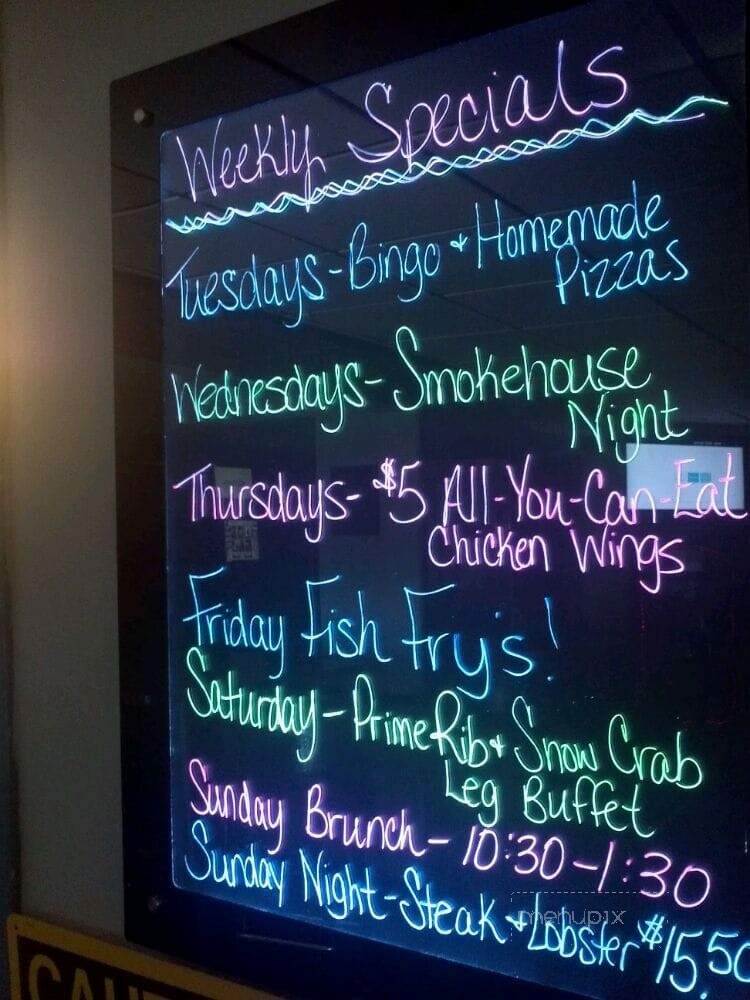 Weekly Specials
Tuesdays - Bingo + Homemade
Pizzas
Wednesdays - Smokehouse
Night
Thursdays - $5 All-You-Can-Eat
Chicken Wings
Friday Fish Fry's!
Saturday - Prime Rib + Snow Crab
Leg Buffet
Sunday Brunch - 10:30 - 1:30
Sunday Night - Steak + Lobster $15.50
menupix